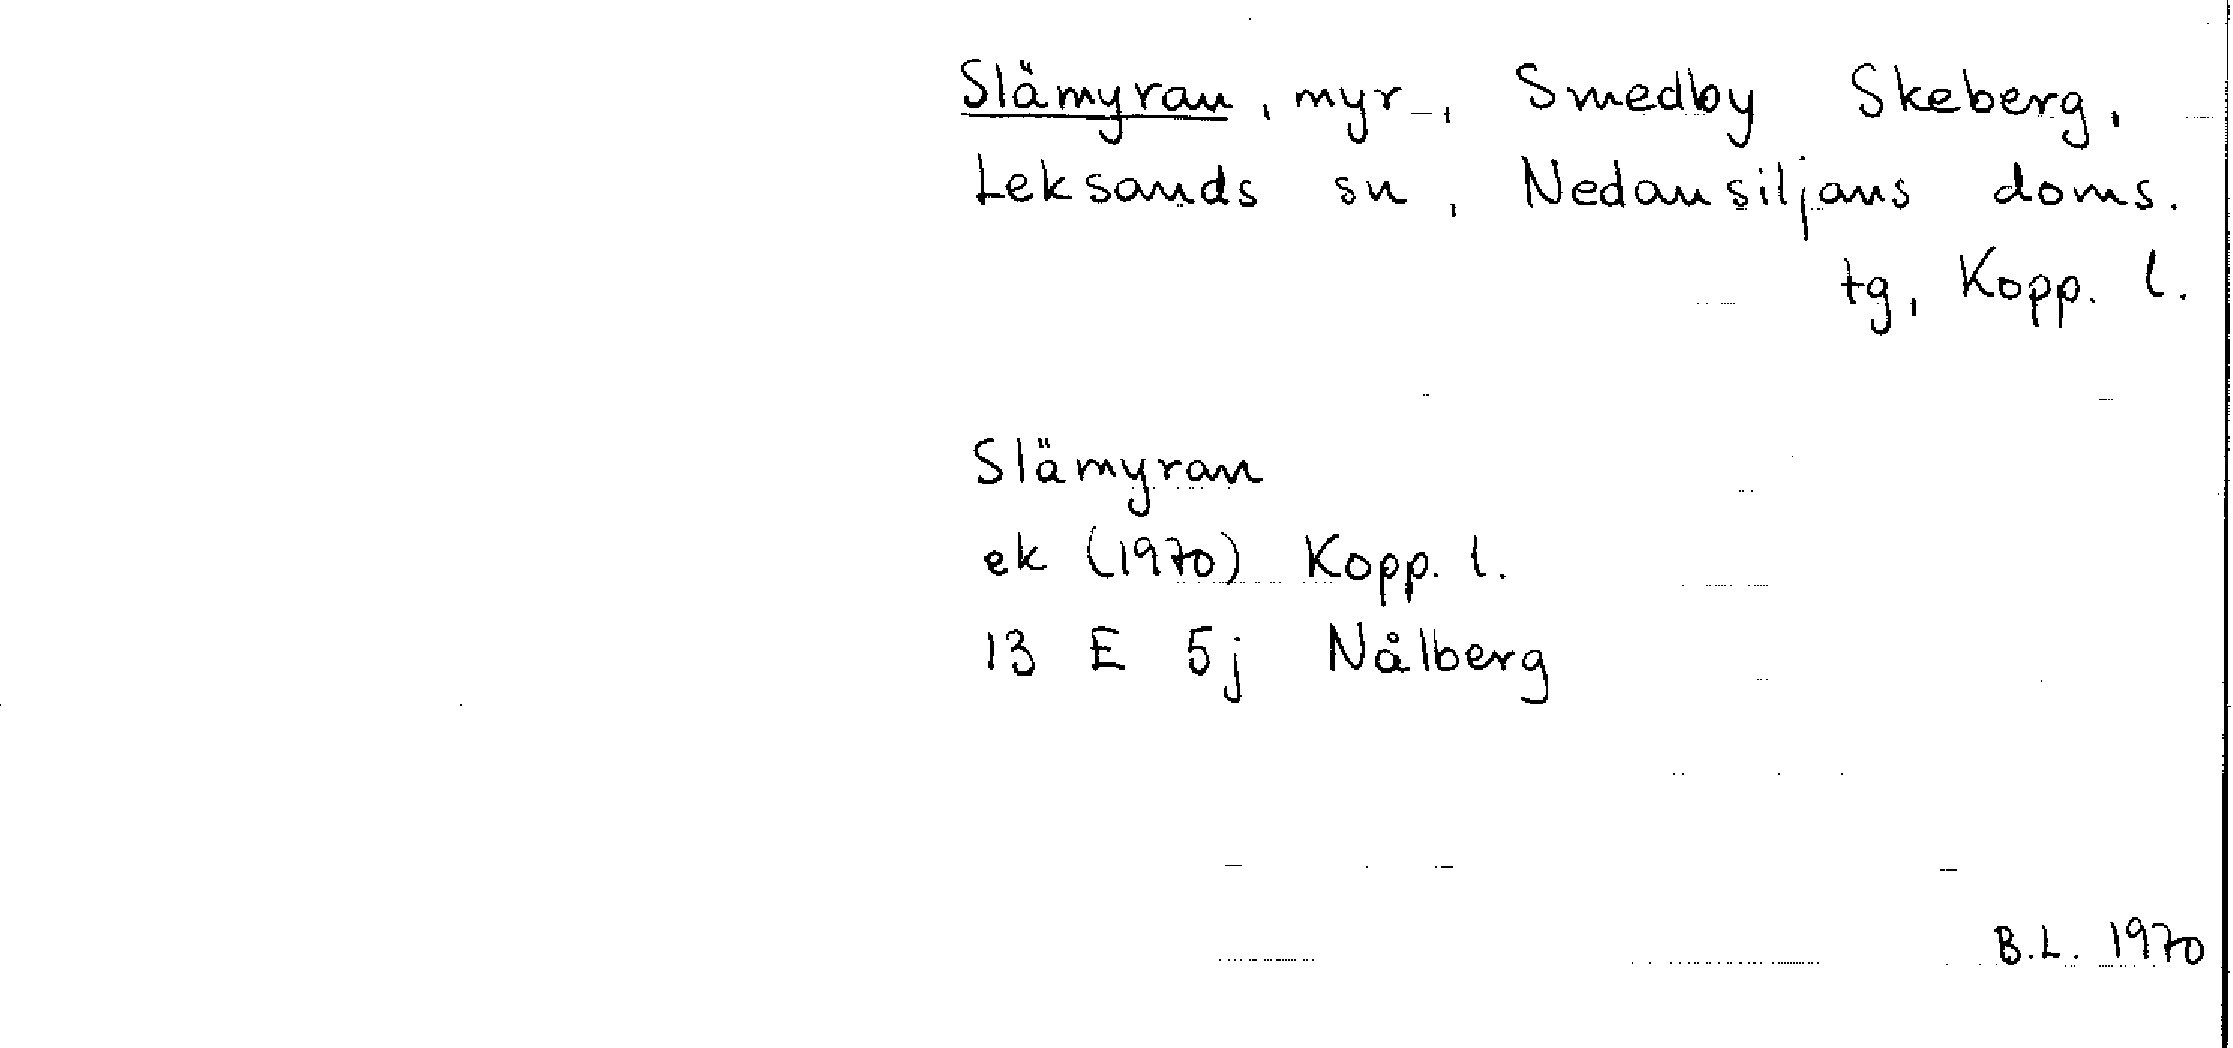 Slämyran, myr, Smedby Skeberg,
Leksands sn, Nedansiljans doms.
tg, Kopp. l.
Slämyran
ek (1970) Kopp. l.
13 E 5j Nålberg
B.L. 1970